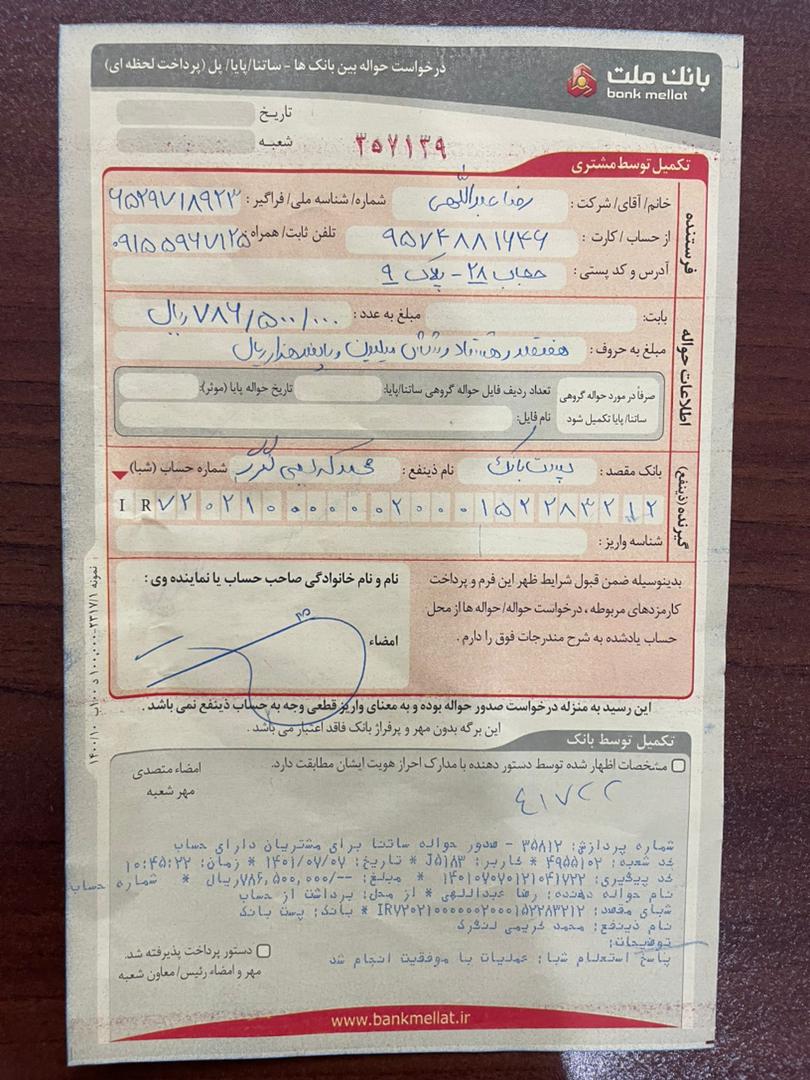 بانک ملت
bank mellat
درخواست حواله بین بانک ها - ساتنا/پایا/پل (پرداخت لحظه ای)
تاریخ
شعبه
۳۵۷۱۳۹
تکمیل توسط مشتری
فرستنده
خانم/آقای/شرکت: رضا عبداللهی شماره/شناسه ملی/فراگیر: ۶۵۲۹۷۱۸۹۲۳
از حساب/کارت: ۹۵۷۴۸۸۱۶۴۶ تلفن ثابت/همراه: ۰۹۱۵۵۹۶۷۱۲۵
آدرس و کد پستی: حجاب ۲۸ - پلاک ۹
اطلاعات حواله
بابت: مبلغ به عدد: ۷۸۶/۵۰۰/۰۰۰ ریال
مبلغ به حروف: هفتصد و هشتاد و شش میلیون و پانصد هزار ریال
صرفاً در مورد حواله گروهی ساتنا/پایا تکمیل شود
تعداد ردیف فایل حواله گروهی ساتنا/پایا: تاریخ حواله پایا (موثر):
نام فایل:
گیرنده (ذینفع)
بانک مقصد: پست بانک نام ذینفع: محمد کریمی شماره حساب (شبا)
IR ۷۲۰۲۱۰۰۰۰۰۰۲۰۰۰۱۵۲۲۸۳۲۱۲
شناسه واریز:
بدینوسیله ضمن قبول شرایط ظهر این فرم و پرداخت
کارمزدهای مربوطه، درخواست حواله/حواله ها از محل
حساب یادشده به شرح مندرجات فوق را دارم.
نام و نام خانوادگی صاحب حساب یا نماینده وی:
امضاء
این رسید به منزله درخواست صدور حواله بوده و به معنای واریز قطعی وجه به حساب ذینفع نمی باشد.
این برگه بدون مهر و پرفراژ بانک فاقد اعتبار می باشد.
تکمیل توسط بانک
مشخصات اظهار شده توسط دستور دهنده با مدارک احراز هویت ایشان مطابقت دارد.
امضاء متصدی
مهر شعبه
۴۱۷۲۲
شماره پردازش: ۳۵۸۱۲ - صدور حواله ساتنا برای مشتریان دارای حساب
کد شعبه: ۴۹۵۵۱۰۲ * کاربر: J۵۱۸۳ * تاریخ: ۱۴۰۱/۰۷/۰۷ * زمان: ۱۰:۴۵:۲۲
کد پیگیری: ۱۴۰۱۰۷۰۷۰۱۲۱۰۴۱۷۲۲ * مبلغ: --/۷۸۶,۵۰۰,۰۰۰ریال * شماره حساب
نام حواله دهنده: رضا عبداللهی * از محل: برداشت از حساب
شبای مقصد: IR۷۲۰۲۱۰۰۰۰۰۰۲۰۰۰۱۵۲۲۸۳۲۱۲ * بانک: پست بانک
نام ذینفع: محمد کریمی لنگرک
توضیحات:
پاسخ استعلام شبا: عملیات با موفقیت انجام شد
دستور پرداخت پذیرفته شد.
مهر و امضاء رئیس/معاون شعبه
www.bankmellat.ir
نمونه ۲۳۱۷/۱-۱۰۰,۰۰۰ د ۱۰۰ب ۱۴۰۰/۱۰